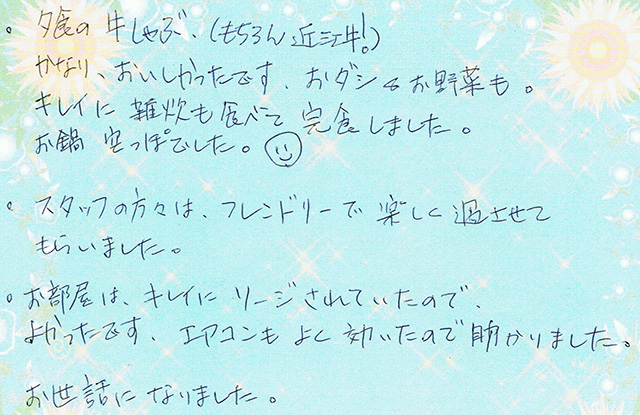 。夕食の牛しゃぶ、(もちろん近江牛!)
かなり、おいしかったです、おダシもお野菜も。
キレイに雑炊も食べて完食しました。
お鍋空っぽでした。
。スタッフの方々は、フレンドリーで楽しく過させて
もらいました。
。お部屋は、キレイにリージされていたので、
よかったです、エアコンもよく効いたので助かりました。
お世話になりました。